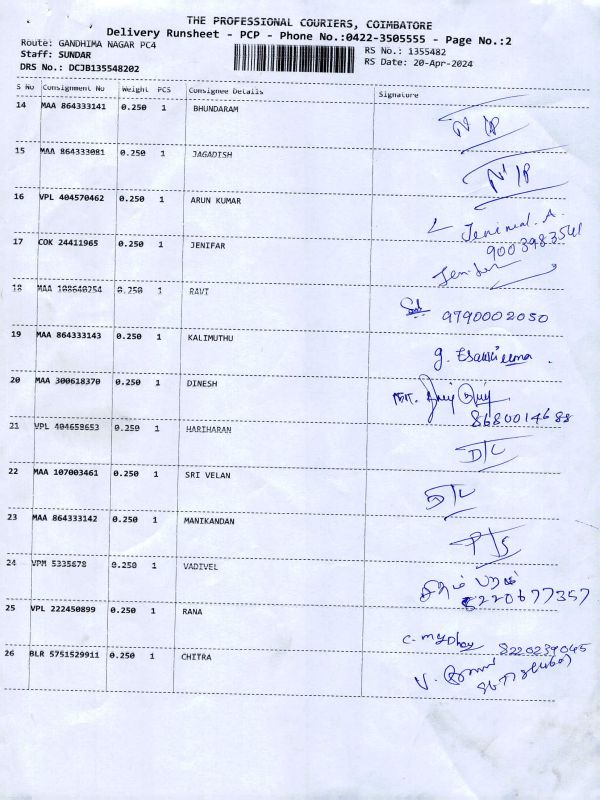 THE PROFESSIONAL COURIERS, COIMBATORE
Delivery Runsheet - PCP - Phone No.:0422-3505555 - Page No.:2
Route: GANDHIMA NAGAR PC4
RS No.: 1355482
Staff: SUNDAR
RS Date: 20-Apr-2024
DRS No.: DCJB135548202
S No Consignment No Weight PCS Consignee Details Signature
14 MAA 864333141 0.250 1 BHUNDARAM
15 MAA 864333081 0.250 1 JAGADISH
16 VPL 404570462 0.250 1 ARUN KUMAR
9003983561
17 COK 24411965 0.250 1 JENIFAR
18 MAA 108640254 0.250 1 RAVI 9790002050
19 MAA 864333143 0.250 1 KALIMUTHU
20 MAA 300618370 0.250 1 DINESH
8680014688
21 VPL 404658653 0.250 1 HARIHARAN D/L
22 MAA 107003461 0.250 1 SRI VELAN D/L
23 MAA 864333142 0.250 1 MANIKANDAN P/S
24 VPM 5335678 0.250 1 VADIVEL
8220677357
25 VPL 222450899 0.250 1 RANA
8220239045
26 BLR 5751529911 0.250 1 CHITRA